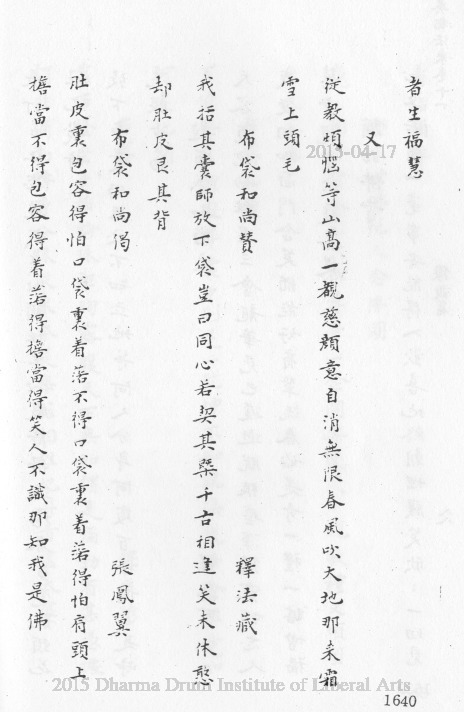 者生福慧
又
從教煩惱等山高一觀慈顏意自消無限春風吹大地那來霜
雪上頭毛
布袋和尚贊 釋法藏
我括其囊師放下袋豈曰同心若契其槩千古相逢笑未休憨
却肚皮艮其背
布袋和尚偈 張鳳翼
肚皮裏包容得怕口袋裏着落不得口袋裏着落得怕肩頭上
擔當不得包容得着落得擔當得笑人不識那知我是佛
2013-04-17
2015 Dharma Drum Institute of Liberal Arts
1640